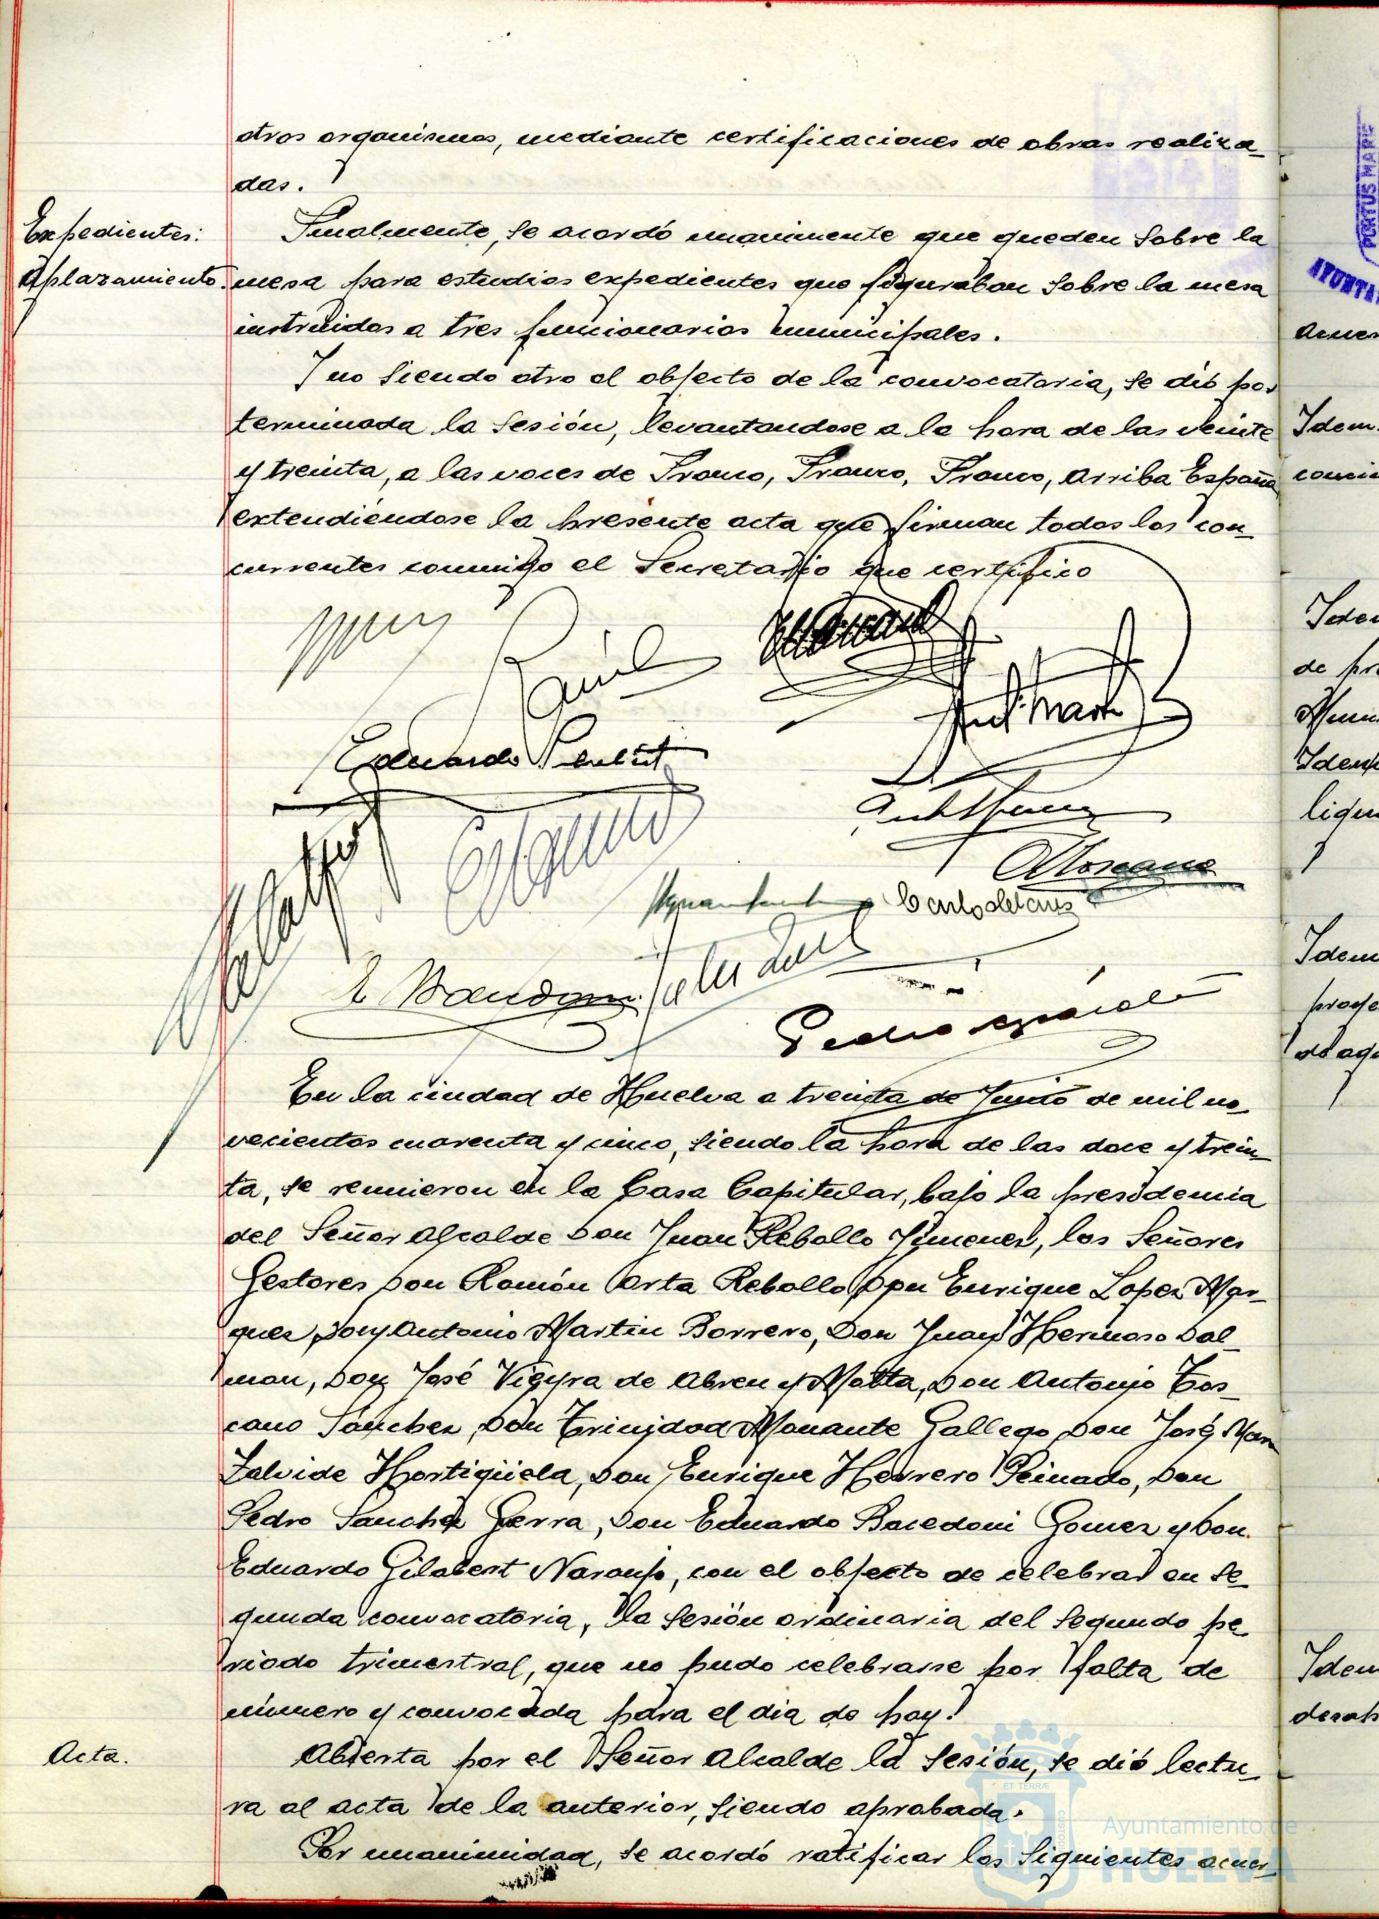 otros organismos, mediante certificaciones de obras realiza-
das.
Expedientes:
Aplazamiento.
Finalmente, se acordó unanimente que queden sobre la
mesa para estudios expedientes que figuraban sobre la mesa
instruidos a tres funcionarios municipales.
Y no siendo otro el objecto de la convocatoria, se dió por
terminada la sesión, levantandose a la hora de las veinte
y treinta, a las voces de Franco, Franco, Franco, Arriba España
extendiéndose la presente acta que firman todos los con-
currentes conmigo el Secretario que certifico
Eduardo Gilabert
Ant. Martín
A Toscano
E Bacedoni
Pedro
En la ciudad de Huelva a treinta de Junio de mil no-
vecientos cuarenta y cinco, siendo la hora de las doce y trein-
ta, se reunieron en la Casa Capitular, bajo la presidencia
del Señor Alcalde Don Juan Rebollo Jimenez, los Señores
Gestores Don Ramón Orta Rebollo, Don Enrique Lopez Mar-
quez, Don Antonio Martin Borrero, Don Juan Hermoso Dal-
mau, Don José Vieyra de Abreu y Motta, Don Antonio Tos-
cano Sánchez, Don Trinidad Manante Gallego, Don José Man
Zalvide Hortigüela, Don Enrique Herrero Peinado, Don
Pedro Sanchez Gerra, Don Eduardo Bacedoni Gomez y Don
Eduardo Gilabert Naranjo, con el objecto de celebrar en se-
gunda convocatoria, la sesión ordinaria del segundo pe-
riodo trimestral, que no pudo celebrarse por falta de
número y convocada para el dia de hoy.
Acta.
Abierta por el Señor Alcalde la sesión, se dió lectu-
ra al acta de la anterior, siendo aprobada.
Por unanimidad, se acordó ratificar los siguientes acuer-
PORTUS MARIS
Idem.
Idem
de
Idem
Idem
ET TERRÆ
Ayuntamiento de
HUELVA